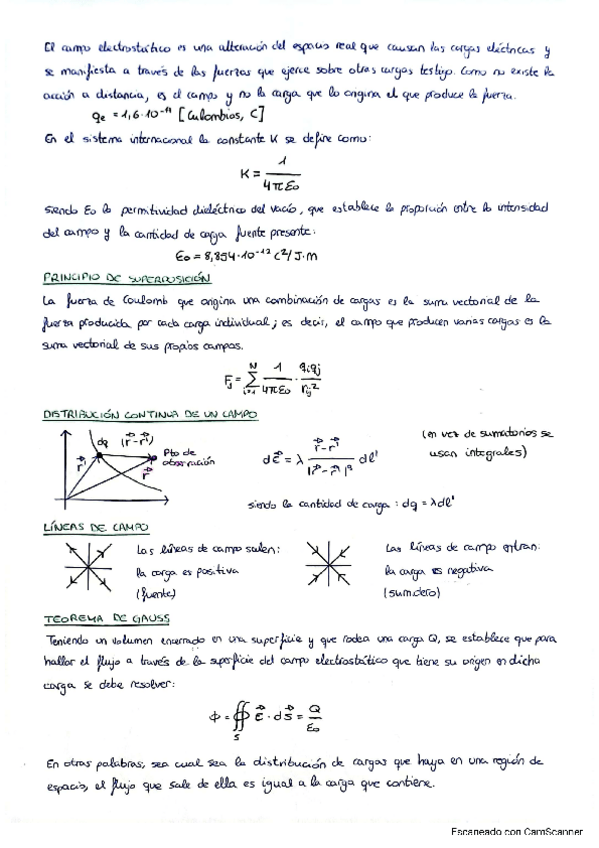 El campo electrostático es una alteración del espacio real que causan las cargas eléctricas y
se manifiesta a través de las fuerzas que ejerce sobre otras cargas testigo. Como no existe la
acción a distancia, es el campo y no la carga que lo origina el que produce la fuerza.
qe = 1,6·10⁻¹⁹ [Culombios, C]
En el sistema internacional la constante K se define como:
K = 1 / 4πε₀
siendo ε₀ la permitividad dieléctrica del vacío, que establece la proporción entre la intensidad
del campo y la cantidad de carga fuente presente:
ε₀ = 8,854·10⁻¹² C²/J·m
PRINCIPIO DE SUPERPOSICIÓN
La fuerza de Coulomb que origina una combinación de cargas es la suma vectorial de la
fuerza producida por cada carga individual; es decir, el campo que producen varias cargas es la
suma vectorial de sus propios campos.
Fj = Σ(i=1, N) 1/4πε₀ · qiqj/rij²
DISTRIBUCIÓN CONTINUA DE UN CAMPO
dq (r⃗-r⃗')
r⃗'
r⃗
Pto de
observación
dE⃗ = λ (r⃗-r⃗')/|r⃗-r⃗'|³ dl'
(en vez de sumatorios se
usan integrales)
siendo la cantidad de carga: dq = λdl'
LÍNEAS DE CAMPO
Las líneas de campo salen:
la carga es positiva
(fuente)
Las líneas de campo entran:
la carga es negativa
(sumidero)
TEOREMA DE GAUSS
Teniendo un volumen encerrado en una superficie y que rodea una carga Q, se establece que para
hallar el flujo a través de la superficie del campo electrostático que tiene su origen en dicha
carga se debe resolver:
Φ = ∯s E⃗ · dS⃗ = Q/ε₀
En otras palabras, sea cual sea la distribución de cargas que haya en una región de
espacio, el flujo que sale de ella es igual a la carga que contiene.
Escaneado con CamScanner